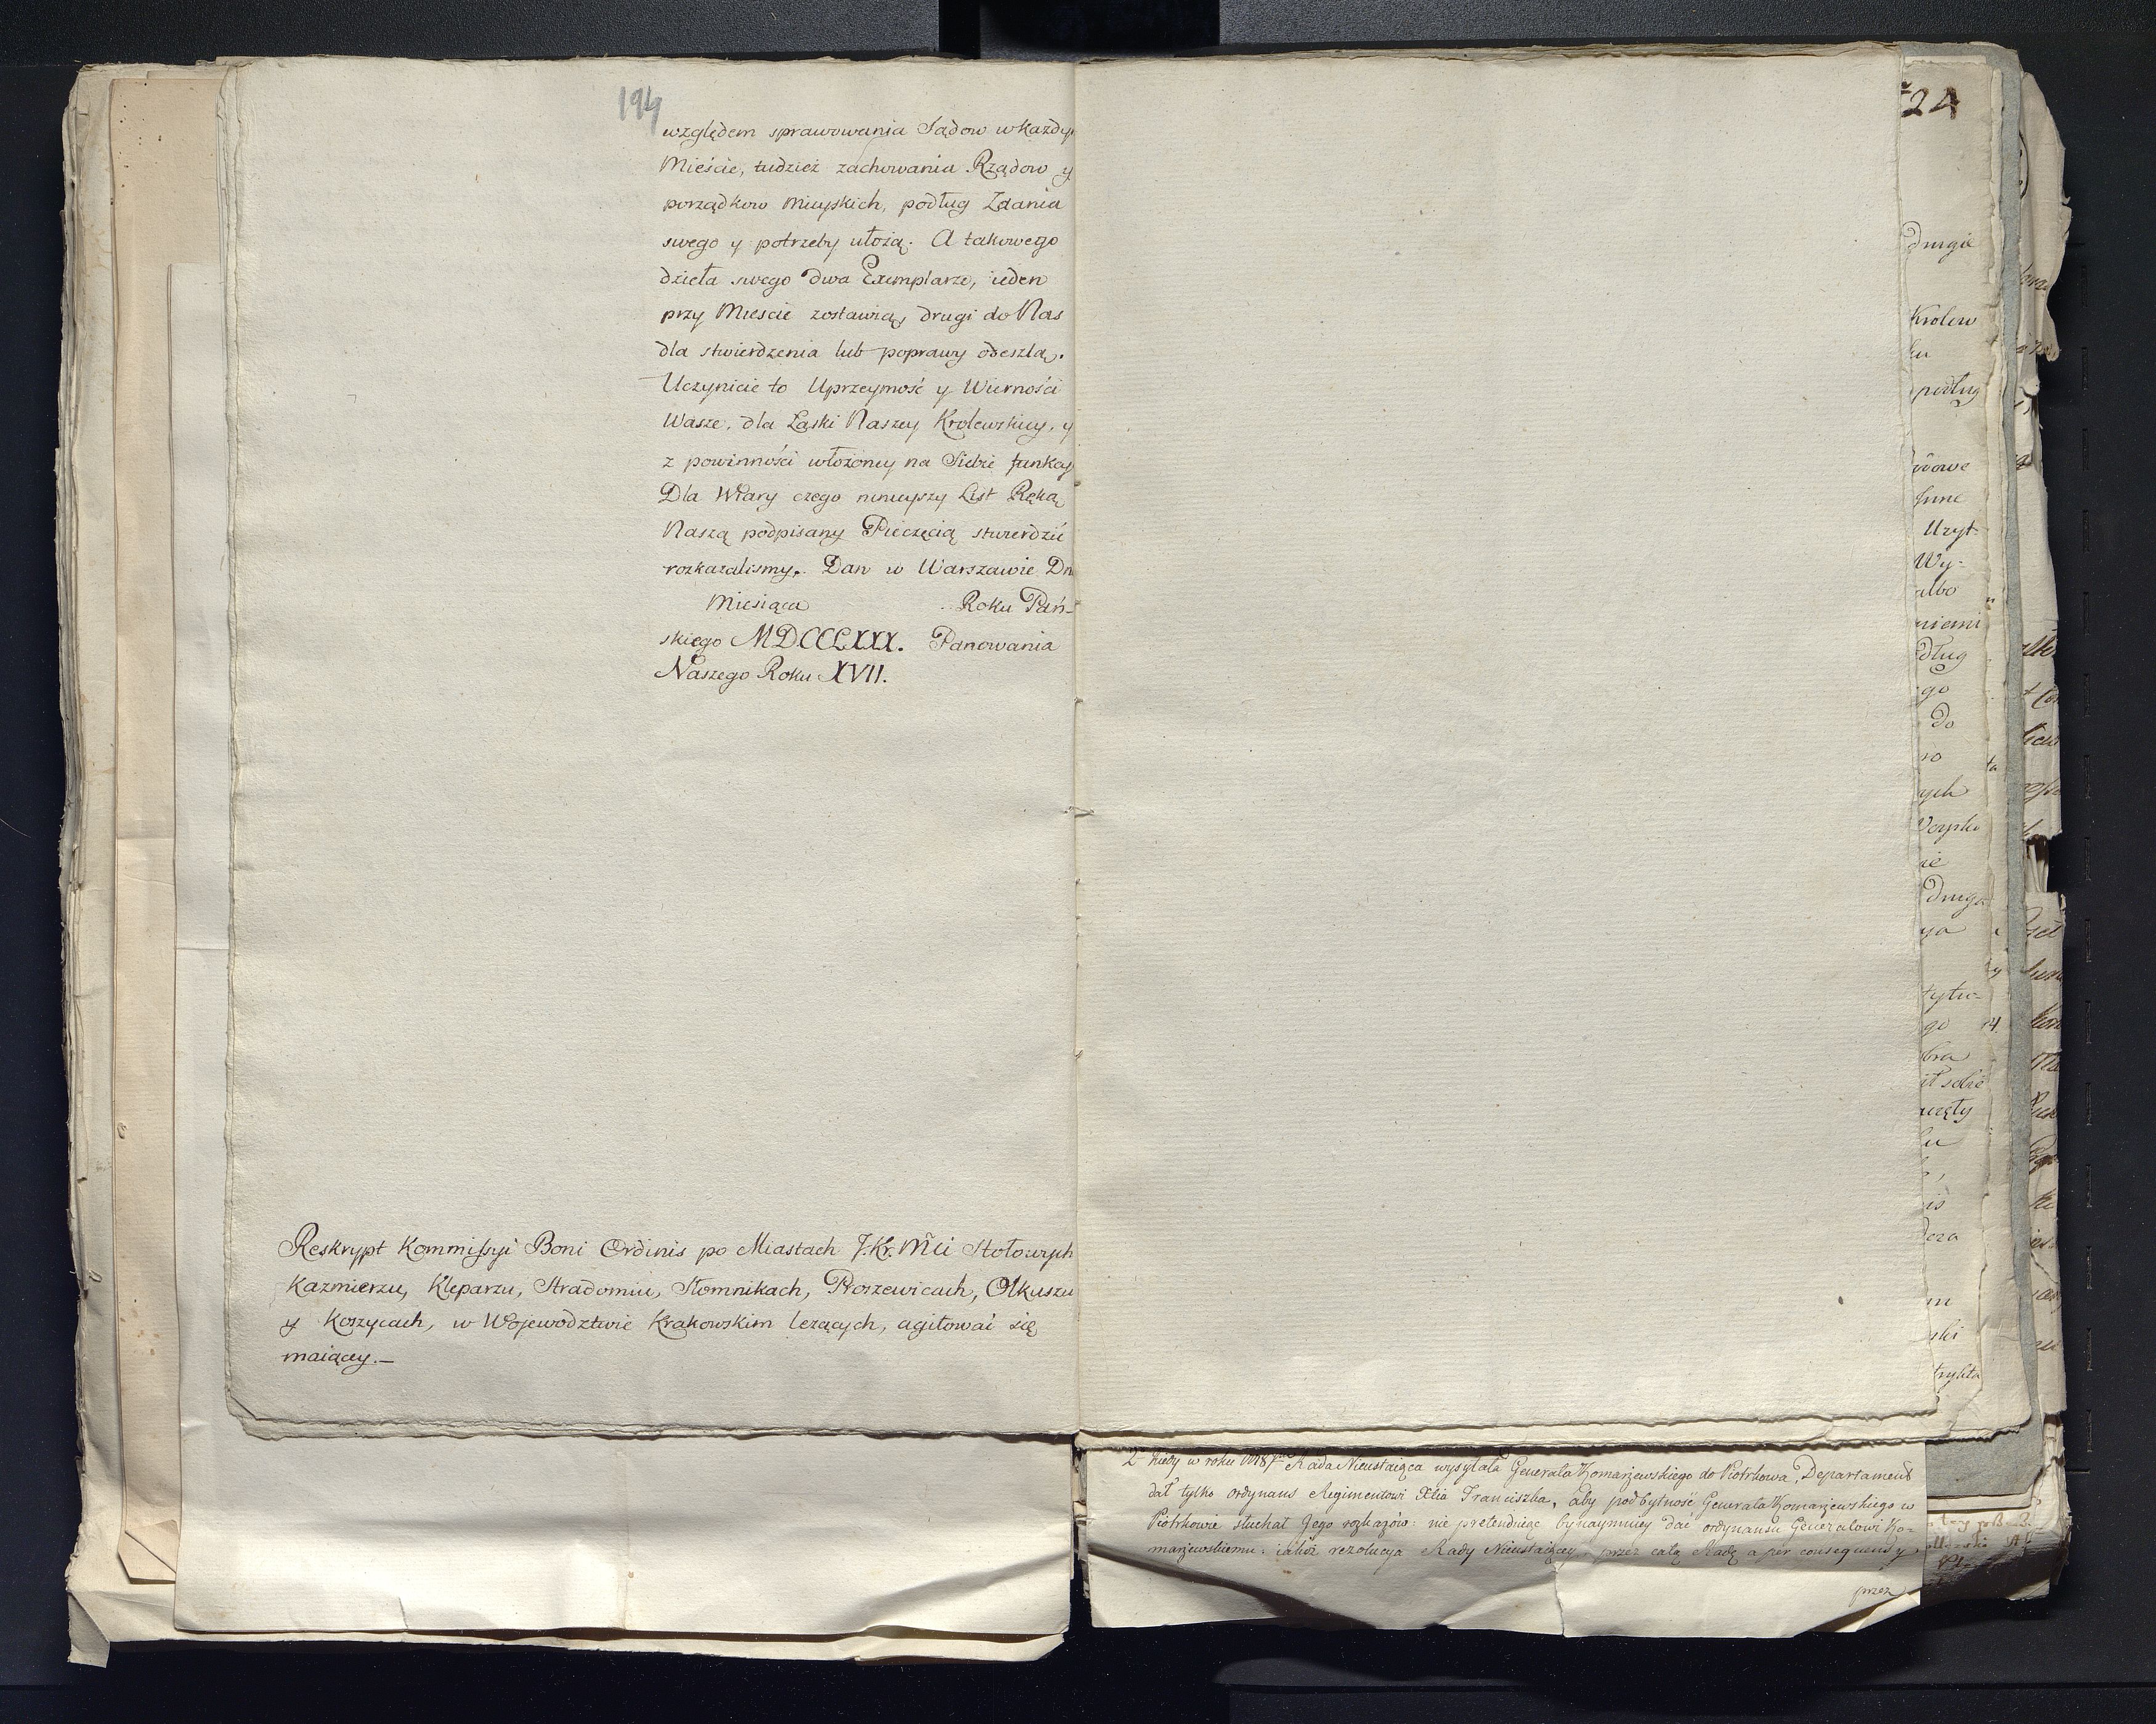 194
względem sprawowania Sądow w każdy
Mieście, tudzież zachowania Rządow y
porządkow Mieyskich, podług Zdania
swego y potrzeby ułożą. A takowego
dzieła swego dwa Exemplarze, ieden
przy Miescie zostawią, drugi do Nas
dla stwierdzenia lub poprawy odeszlą.
Uczynicie to Uprzeymość y Wierności
Wasze, dla Łaski Naszey Krolewskiey, y
z powinności włożoney na Siebie funkcy
Dla Wiary czego ninieyszy List Ręką
Naszą podpisany Pieczęcią stwierdzić
rozkazalismy. Dan w Warszawie Dn
Miesiąca Roku Pań-
skiego MDCCLXXX. Panowania
Naszego Roku XVII.
Reskrypt Kommissyi Boni Ordinis po Miastach J.Kr. Mci Stołowych
Kazmierzu, Kleparzu, Stradomiu, Słomnikach, Proszewicach, Olkuszu
y Koszycach, w Wojewodztwie Krakowskim leżących, agitować się
maiącey.—
24
drugie
Krolew
podług
Uzyt-
Wy-
albo
niemi
dług
go
do
ych
druga
go
2 Kiedy w roku Rada Nieustaiąca wysyłała Generała Komarzewskiego do Piotrkowa, Departament
dał tylko ordynans Regimentowi Xcia Franciszka, aby pod bytność Generała Komarzewskiego w
Piotrkowie słuchał Jego rozkazów: nie pretenduiąc bynaymniey dać ordynansu Generałowi Ko-
marzewskiemu: iakoż rezolucya Rady Nieustaiącey, przez całą Radę a per consequens y
przez